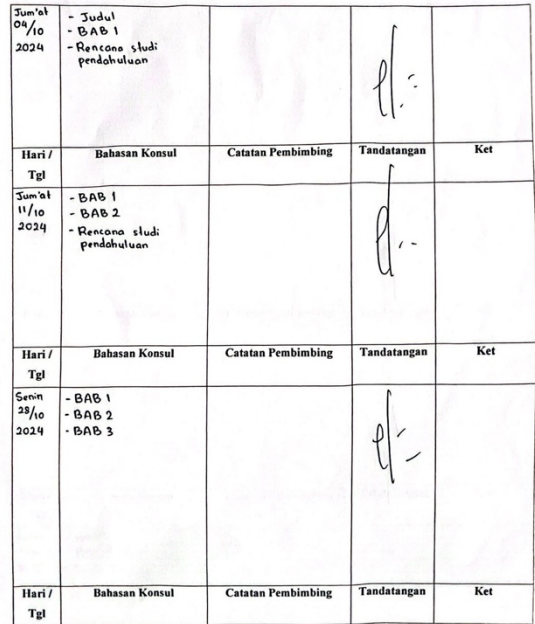 Jum'at
04/10
2024
- Judul
- BAB 1
- Rencana studi
pendahuluan
Hari /
Tgl
Bahasan Konsul
Catatan Pembimbing
Tandatangan
Ket
Jum'at
11/10
2024
- BAB 1
- BAB 2
- Rencana studi
pendahuluan
Hari /
Tgl
Bahasan Konsul
Catatan Pembimbing
Tandatangan
Ket
Senin
28/10
2024
- BAB 1
- BAB 2
- BAB 3
Hari /
Tgl
Bahasan Konsul
Catatan Pembimbing
Tandatangan
Ket